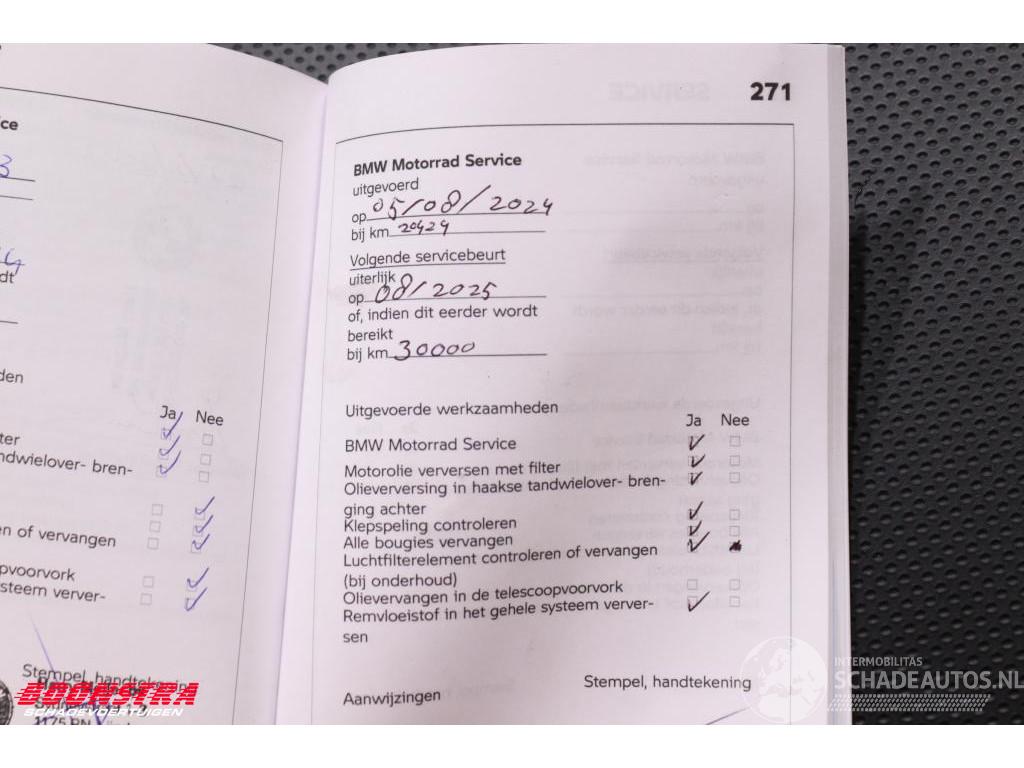 271
ce
3
dt
den
Ja Nee
ter
ndwielover- bren-
en of vervangen
pvoorvork
steem verver-
Stempel, handtekenin
BMW Motorrad Service
uitgevoerd
op 05/08/2024
bij km 20424
Volgende servicebeurt
uiterlijk
op 08/2025
of, indien dit eerder wordt
bereikt
bij km 30000
Uitgevoerde werkzaamheden
Ja Nee
BMW Motorrad Service
Motorolie verversen met filter
Olieverversing in haakse tandwielover- bren-
ging achter
Klepspeling controleren
Alle bougies vervangen
Luchtfilterelement controleren of vervangen
(bij onderhoud)
Olievervangen in de telescoopvoorvork
Remvloeistof in het gehele systeem verver-
sen
Stempel, handtekening
Aanwijzingen
BOONSTRA
SCHADEVOERTUIGEN
INTERMOBILITAS
SCHADEAUTOS.NL